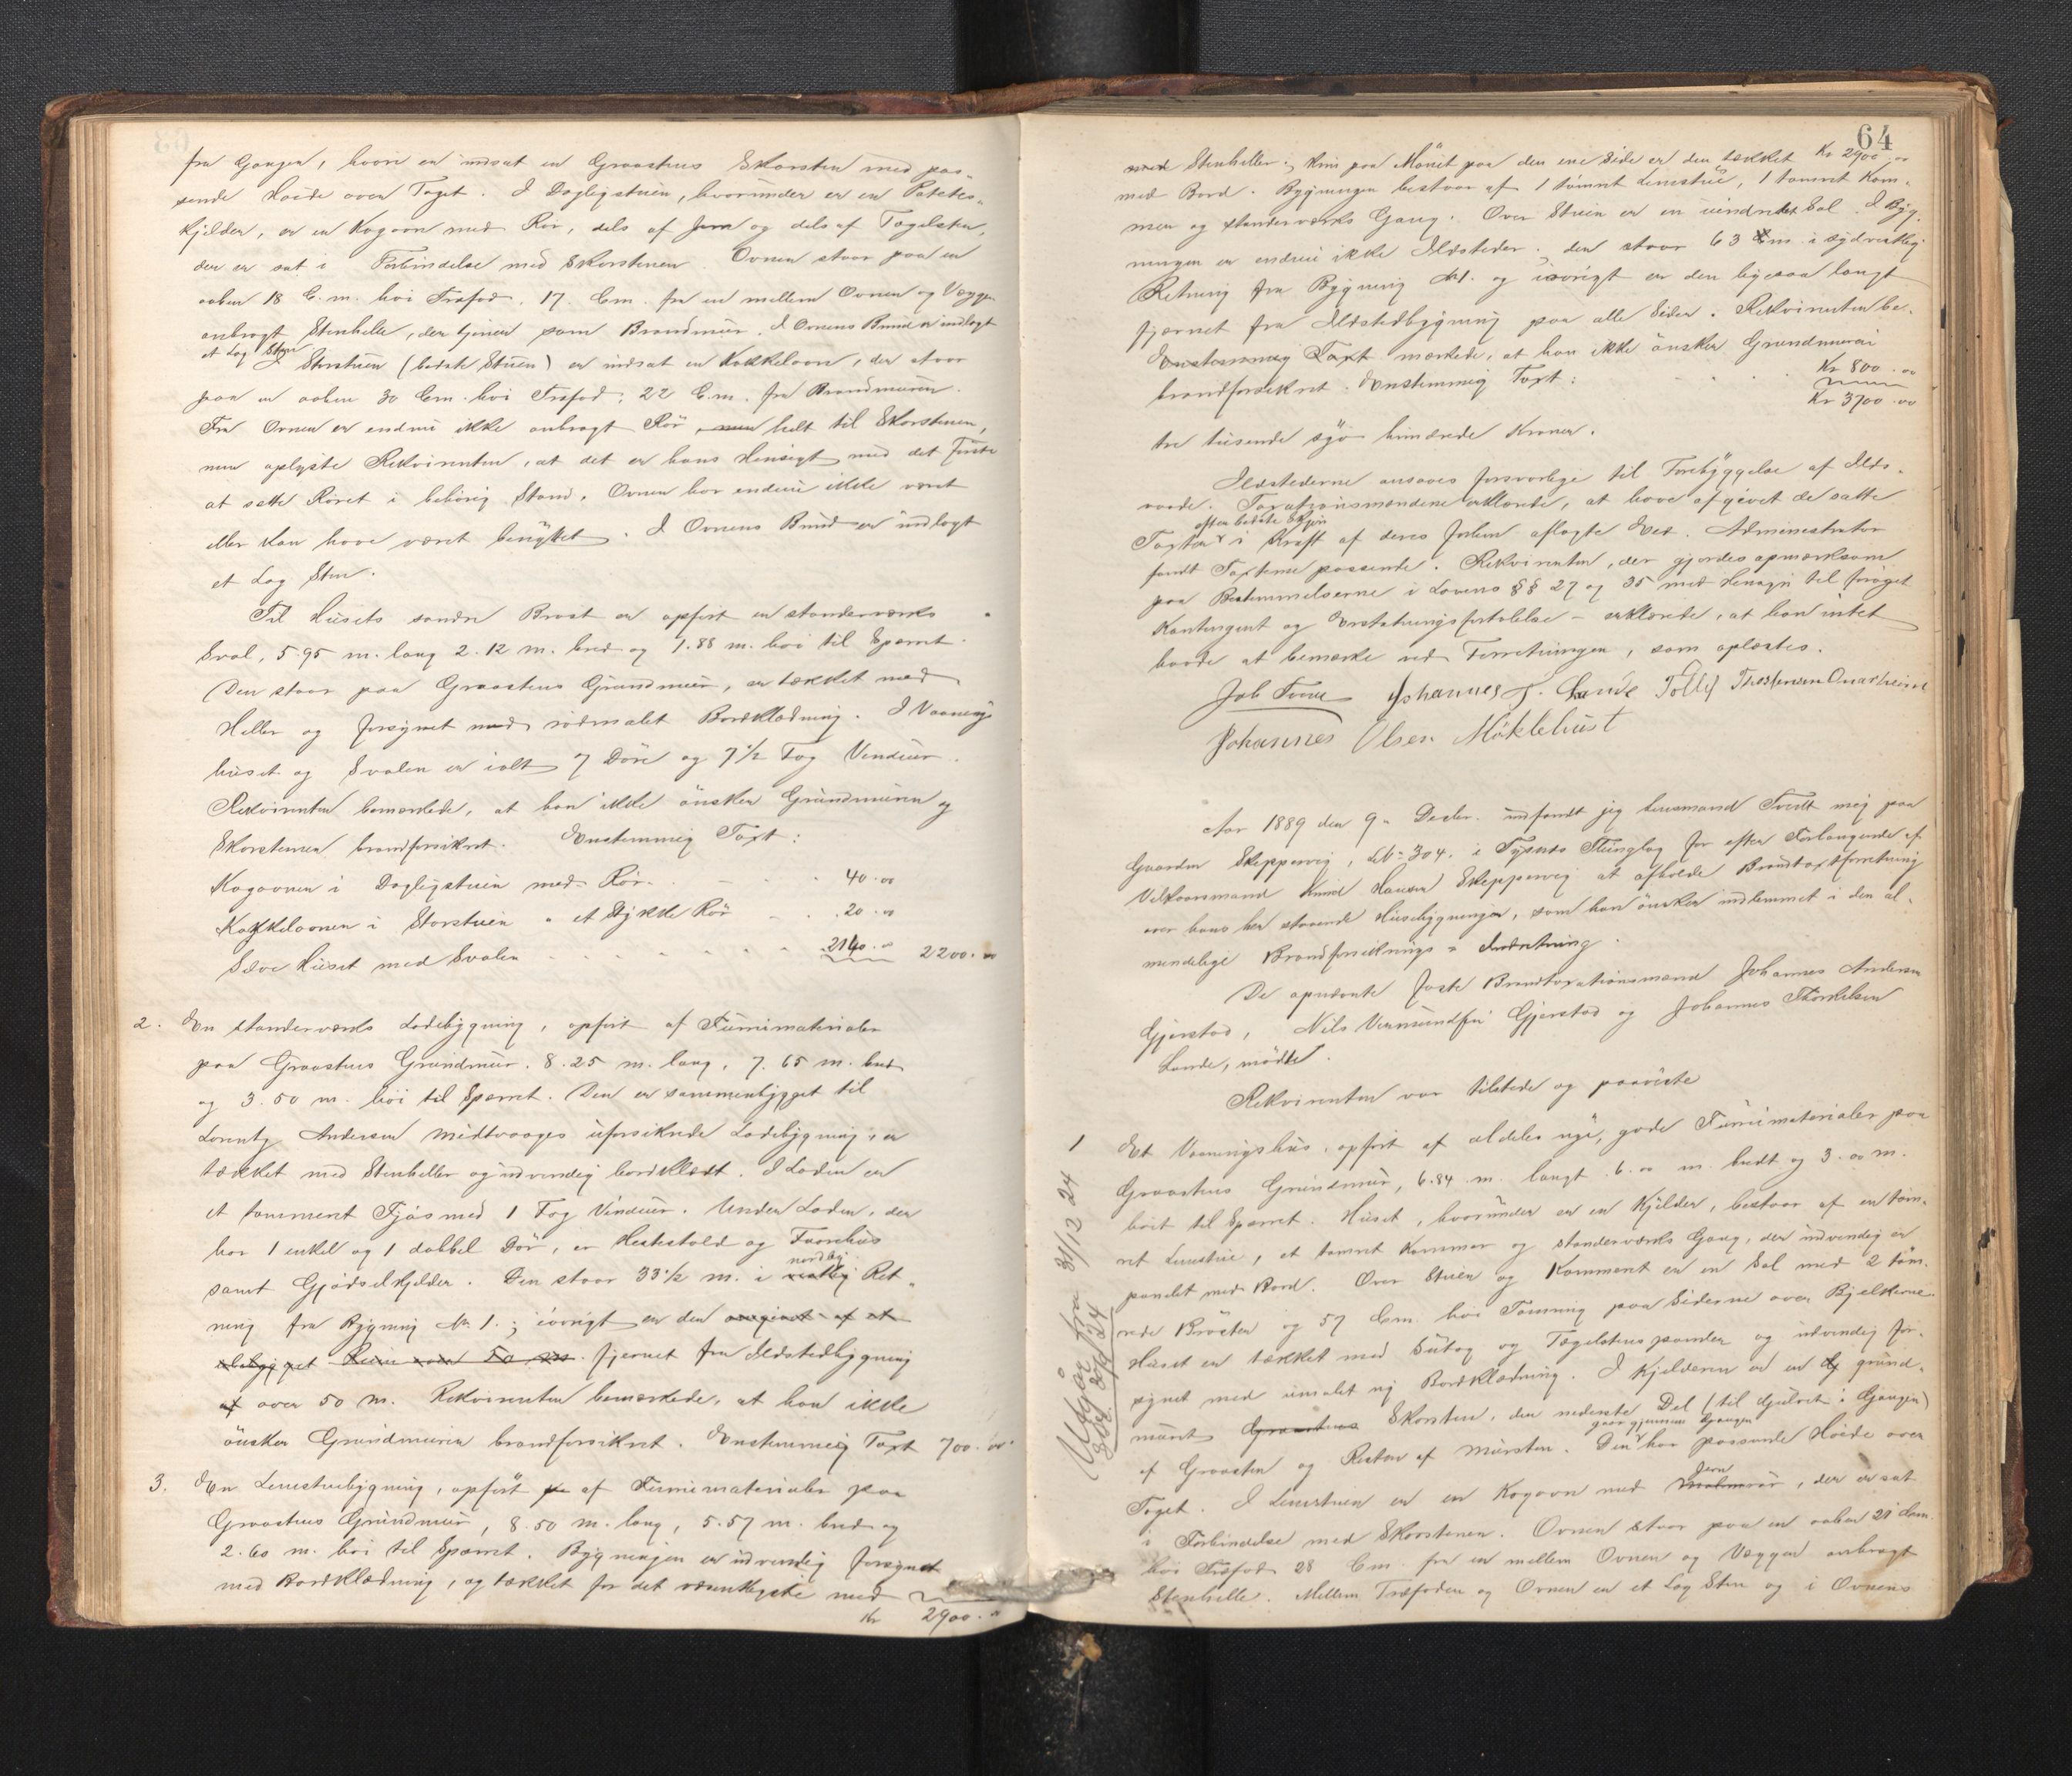 fra Gangen, hvori en indsat en Graastens Skorsten med pas-
sende Høide over Taget. I Dagligstuen, hvorunder er en Potetes-
kjelder, er en Kogovn med Rør, dels af Jern og dels af Tagelsten,
der er sat i Forbindelse med Skorstenen. Ovnen staar paa en
aaben 18 C.m. høi Træfod, 17. Cm. fra en mellem Ovnen og Væggen
anbragt Stenhelle, der tjener som Brandmur. I Ovnens Bund er indlagt
et Lag Sten
I Storstuen (bedste Stuen) er indsat en Kakkelovn, der staar
paa en aaben 30 Cm. høi Træfod, 22 C.m. fra Brandmuren.
Fra Ovnen er endnu ikke anbragt Rør, men helt til Skorstenen,
men oplyste Rekvirenten, at det er hans Hensigt med det første
at sætte Røret i behørig Stand. Ovnen har endnu ikke været
eller kan have været benyttet. I Ovnens Bund er indlagt
et Lag Sten.
Til Husets søndre Brøst er opført en standerværks
Sval, 5.95 m. lang 2.12 m. bred og 1.88 m. høi til Sparret.
Den staar paa Graastens Grundmur, er tækket med
Heller og forsynet med rødmalet Bordklædning. I Vaanings
huset og Svalen er ialt 7 Døre og 7½ Fag Vinduer.
Rekvirenten bemærkede, at han ikke ønsker Grundmuren og
Skorstenen brandforsikret. Enstemmig Taxt:
Kogovnen i Dagligstuen med Rør . . 40.00
Kakkelovnen i Storstuen " et Stykke Rør . . 20.00
Selve Huset med Svalen . . . . 2140.00 2200.00
2. En standerværks Ladebygning, opført af Furrumaterialer
paa Graastens Grundmur. 8.25 m. lang, 7.65 m. bred
og 3.50 m. høi til Sparret. Den er sammenbygget til
Lorentz Andersen Midtvaages uforsikrede Ladebygning, er
tækket med Stenheller og udvendig bordklædt. I Laden er
et tømmeret Fjøs med 1 Fag Vinduer. Under Laden, der
har 1 enkel og 1 dobbel Dør, er Hestestald og Faarehus
nordlig
samt Gjødselkjelder. Den staar 33½ m. i vestlig Ret-
ning fra Bygning No 1.; iøvrigt er den
fjernet fra Ildstedbygning
af over 50 m. Rekvirenten bemærkede, at han ikke
ønsker Grundmuren brandforsikret. Enstemmig Taxt 700.00.
3. En Lemstuebygning, opført pa af Furrumaterialer paa
Graastens Grundmur, 8.50 m. lang, 5.57 m. bred og
2.60 m. høi til Sparret. Bygningen er udvendig forsynet
med Bordklædning, og tækket for det væsentligste med
Kr 2900.00
64
med Stenheller; kun paa Mønet paa den ene Side er den tækket Kr 2900.00
med Bord. Bygningen bestaar af 1 tømret Lemstue, 1 tømret Kam-
mer og standerværks Gang. Over Stuen er en uindredet Sal. I Byg-
ningen er endnu ikke Ildsteder; den staar 63 m. i sydvestlig
Retning fra Bygning No 1. og iøvrigt er den ligesaa langt
fjærnet fra Ildstedbygning paa alle Sider. Rekvirenten be-
Enstemmig Taxt mærkede, at han ikke ønsker Grundmuren
brandforsikret. Enstemmig Taxt: Kr 800.00
Kr 3700.00
tre tusende syv hundrede Kroner.
Ildstederne ansaaes forsvarlige til Forebyggelse af Ilds-
vaade. Taxationsmændene erklærede, at have afgivet de satte
efter bedste Skjøn
Taxter i Kraft af deres forhen aflagte Eed. Administrator
fandt Taxterne passende. Rekvirenten, der gjordes opmærksom
paa Bestemmelserne i Lovens §§ 27 og 35 med Hensyn til forøget
Kontingent og Erstatningsfortabelse – erklærede, at han intet
havde at bemærke ved Forretningen, som oplæstes.
Johannes J. Lande
Johannes Olsen Møklebust
Aar 1889 den 9" Decbr. indfandt jeg Lensmand Tvedt mig paa
Gaarden Skeppevig, LNo 304. i Tysnes Thinglag for efter Forlangende af
Velkaarsmand Knud Hansen Skeppevig at afholde Brandtaxtforretning
over hans her staaende Husebygninger, som han ønsker indlemmet i den al-
mindelige Brandforsikrings-Indretning.
De opnævnte faste Brandtaxationsmænd Johannes Andersen
Gjerstad, Nils Vermundsen Gjerstad og Johannes Thorkelsen
Lande, mødte.
Rekvirenten var tilstede og paaviste
1 Et Vaaningshus, opført af aldeles nye, gode Furrumaterialer paa
Graastens Grundmur, 6.84 m. langt 6.00 m. bredt og 3.00 m.
høit til Sparret. Huset, hvorunder er en Kjelder, bestaar af en tøm-
ret Lemstue, et tømret Kammer og standerværks Gang, der indvendig er
panelet med Bord. Over Stuen og Kammeret er en Sal med 2 tøm-
rede Brøster og 57 Cm. høi Tømring paa Siderne over Bjelkerne.
Huset er tækket med Sutag og Tægelstenspander og udvendig for-
synet med umalet ny Bordklædning. I Kjelderen er en grund-
muret Graastens Skorsten, den nederste Del (til Gulvet i Gangen)
gaar gjennem Gangen
af Graasten og Resten af Mursten. Den har passende Høide over
Jern
Taget. I Lemstuen er en Kogovn med rør, der er sat
i Forbindelse med Skorstenen. Ovnen staar paa en aaben 21 Cm.
høi Træfod 28 Cm. fra en mellem Ovnen og Væggen anbragt
Stenhelle. Mellem Træfoden og Ovnen er et Lag Sten og i Ovnens
Udgår fra 31/12 24